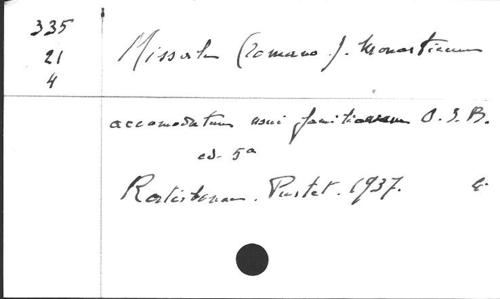 335
21
4
Missale (romano). Monasticum
accomodatum usui familiarum O. S. B.
ed. 5a
Ratisbonam. Pustet. 1937.